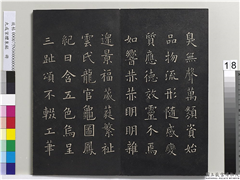 臭無聲萬類資始
品物流形隨感變
質應德效靈介焉
如響赫赫明明雜
遝景福葳蕤繁祉
雲氏龍官龜圖鳳
紀日含五色烏呈
三趾頌不輟工筆
18